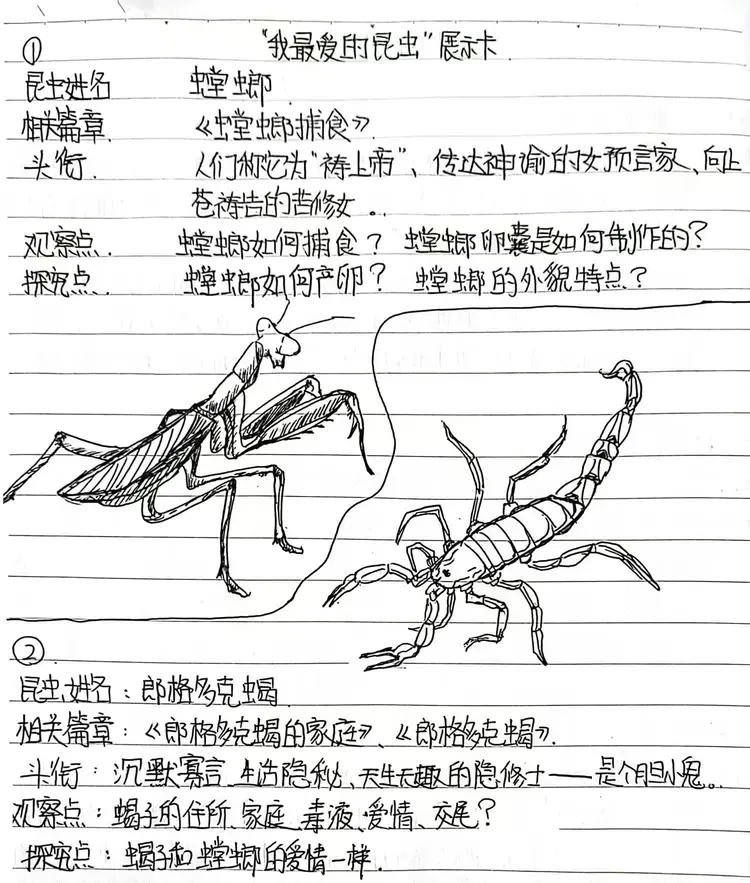 ① "我最爱的昆虫"展示卡
昆虫姓名 螳螂
相关篇章 《螳螂捕食》
头衔 人们称它为"祷上帝"、传达神谕的女预言家、向上
苍祷告的苦修女。
观察点 螳螂如何捕食? 螳螂卵囊是如何制作的?
探究点 螳螂如何产卵? 螳螂的外貌特点?
②
昆虫姓名:郎格多克蝎
相关篇章:《郎格多克蝎的家庭》、《郎格多克蝎》
头衔:沉默寡言、生活隐秘、天生无趣的隐修士——是个胆小鬼。
观察点:蝎子的住所、家庭、毒液、爱情、交尾?
探究点:蝎子和螳螂的爱情一样.